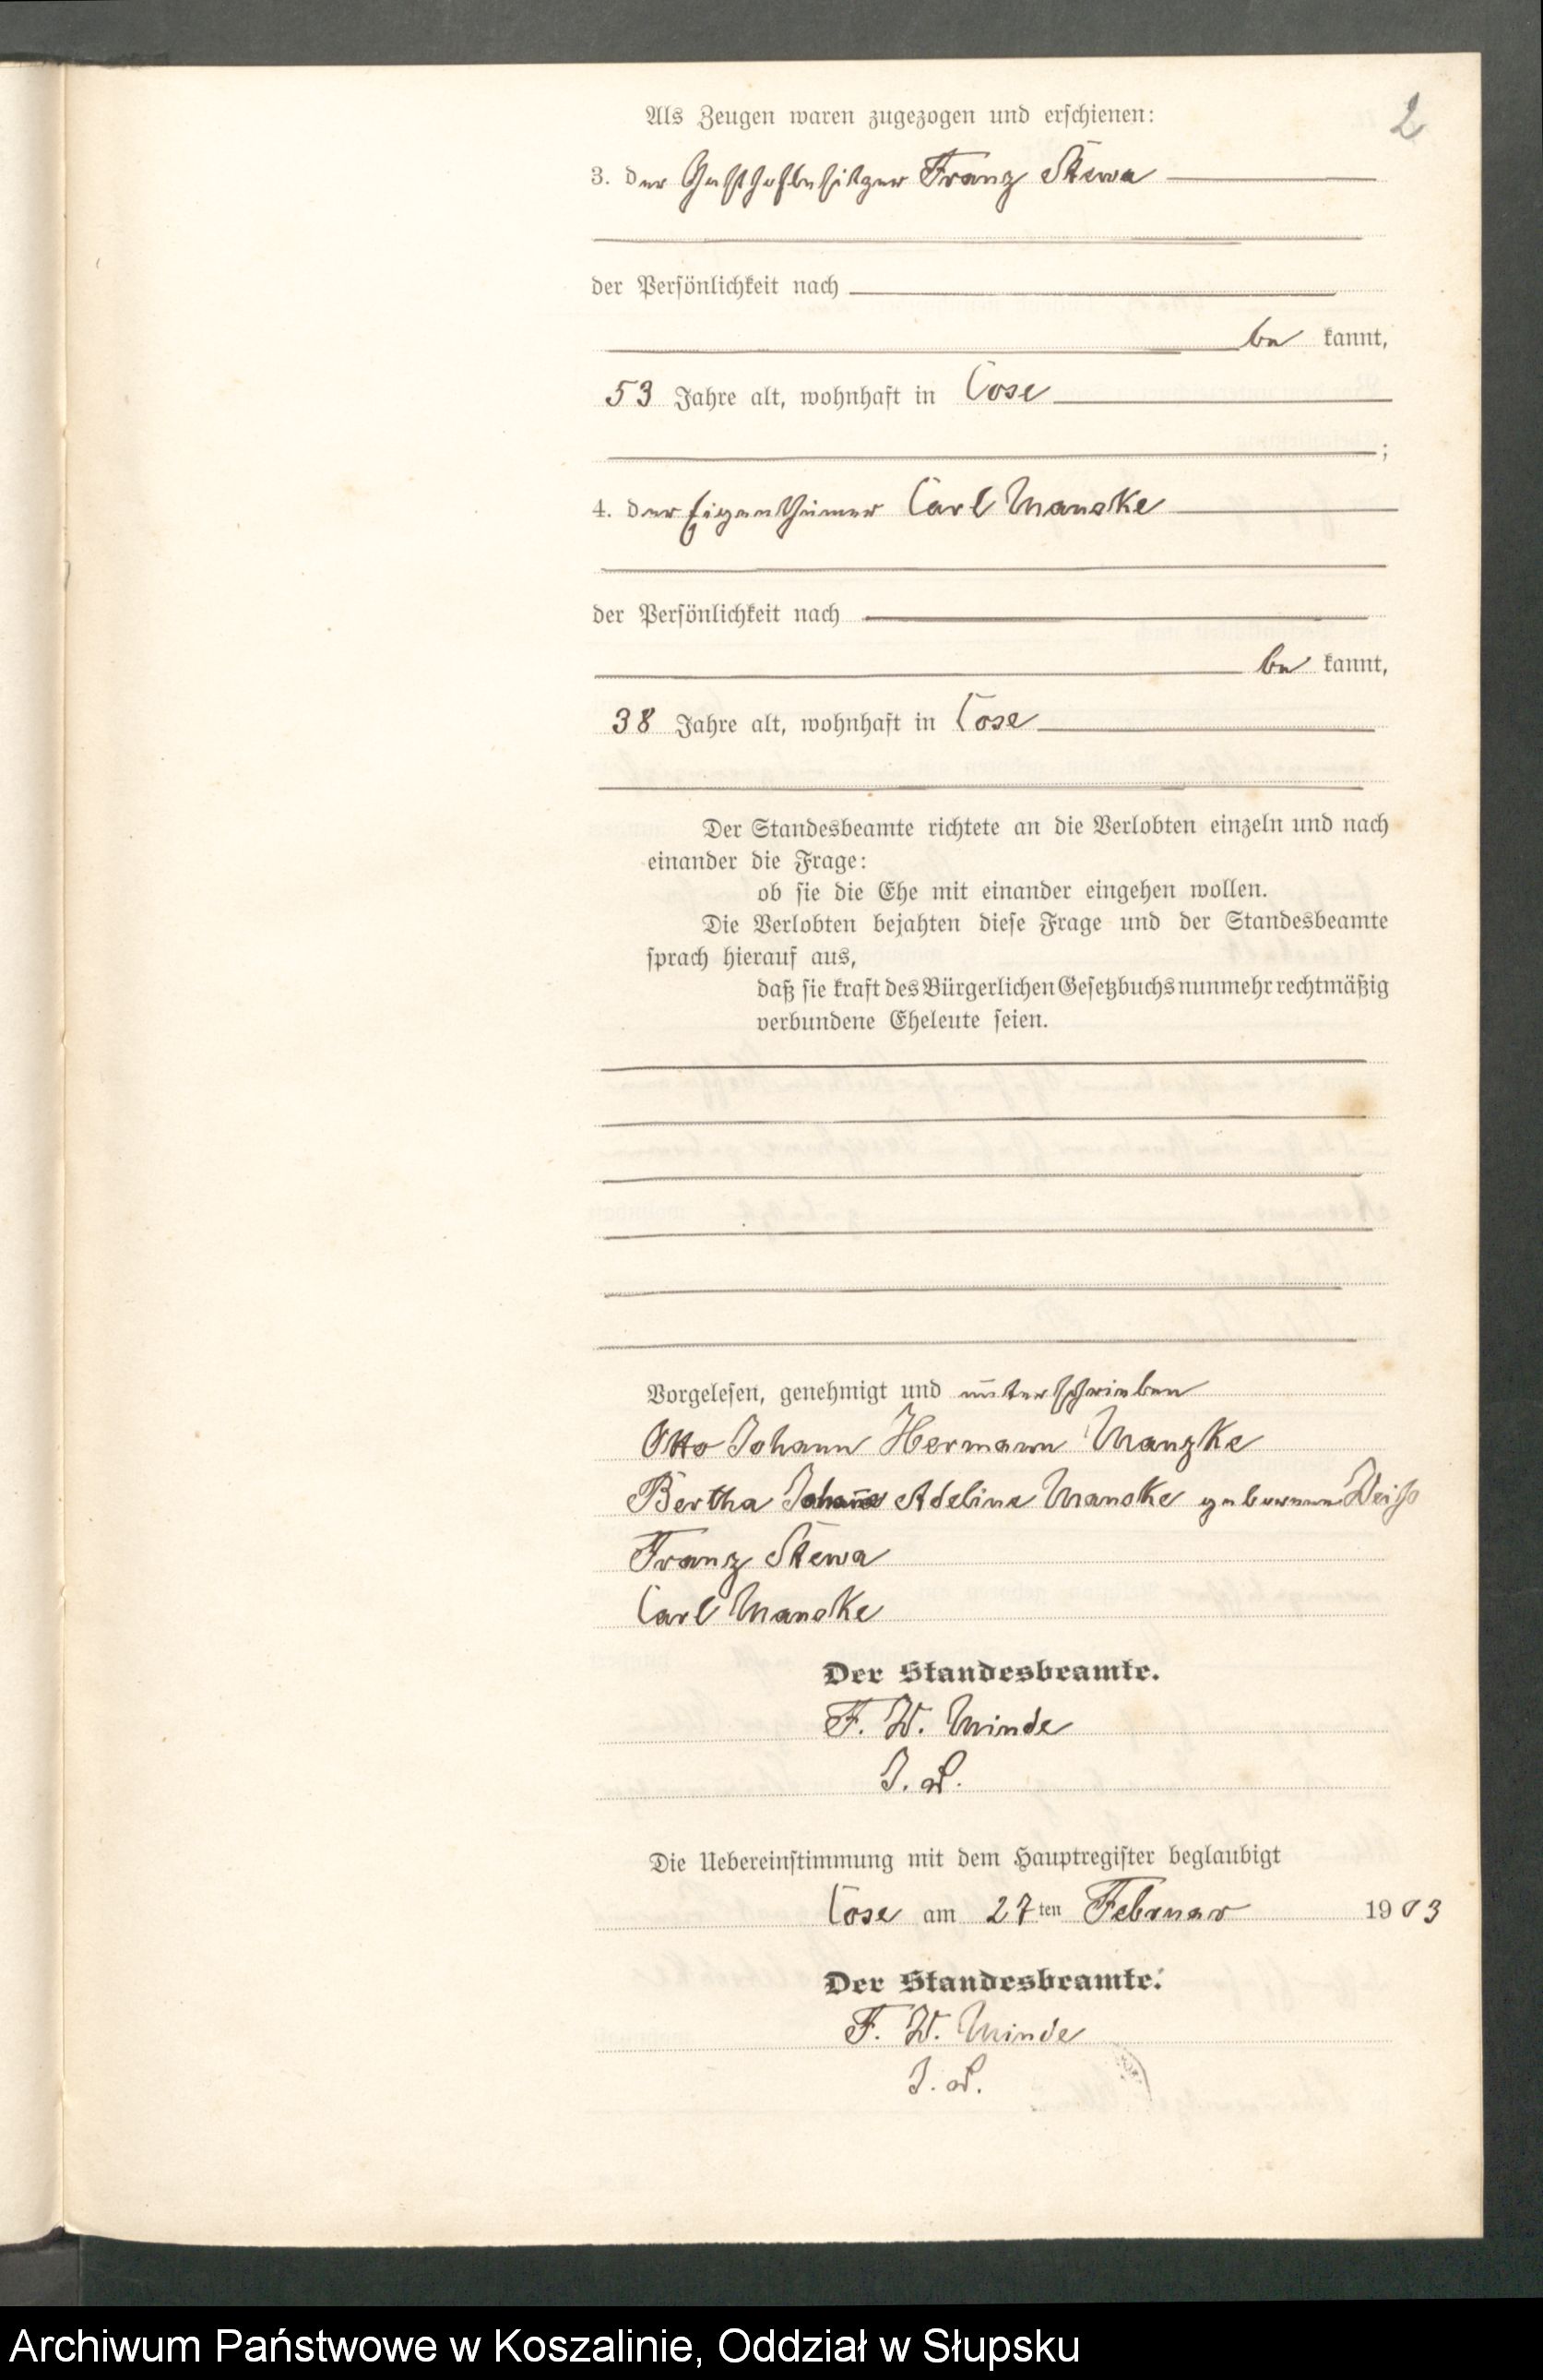 2
Als Zeugen waren zugezogen und erschienen:
3. der Gasthofbesitzer Franz Stewa
der Persönlichkeit nach
be kannt,
53 Jahre alt, wohnhaft in Cose
;
4. der Eigenthümer Carl Manske
der Persönlichkeit nach
be kannt,
38 Jahre alt, wohnhaft in Cose
Der Standesbeamte richtete an die Verlobten einzeln und nach
einander die Frage:
ob sie die Ehe mit einander eingehen wollen.
Die Verlobten bejahten diese Frage und der Standesbeamte
sprach hierauf aus,
daß sie kraft des Bürgerlichen Gesetzbuchs nunmehr rechtmäßig
verbundene Eheleute seien.
Vorgelesen, genehmigt und unterschrieben
Otto Johann Hermann Manzke
Bertha Adeline Manske geborene Weiß
Franz Stewa
Carl Manske
Der Standesbeamte.
F. W. Minde
Die Uebereinstimmung mit dem Hauptregister beglaubigt
Cose am 27ten Februar 1903
Der Standesbeamte.
F. W. Minde
Archiwum Państwowe w Koszalinie, Oddział w Słupsku